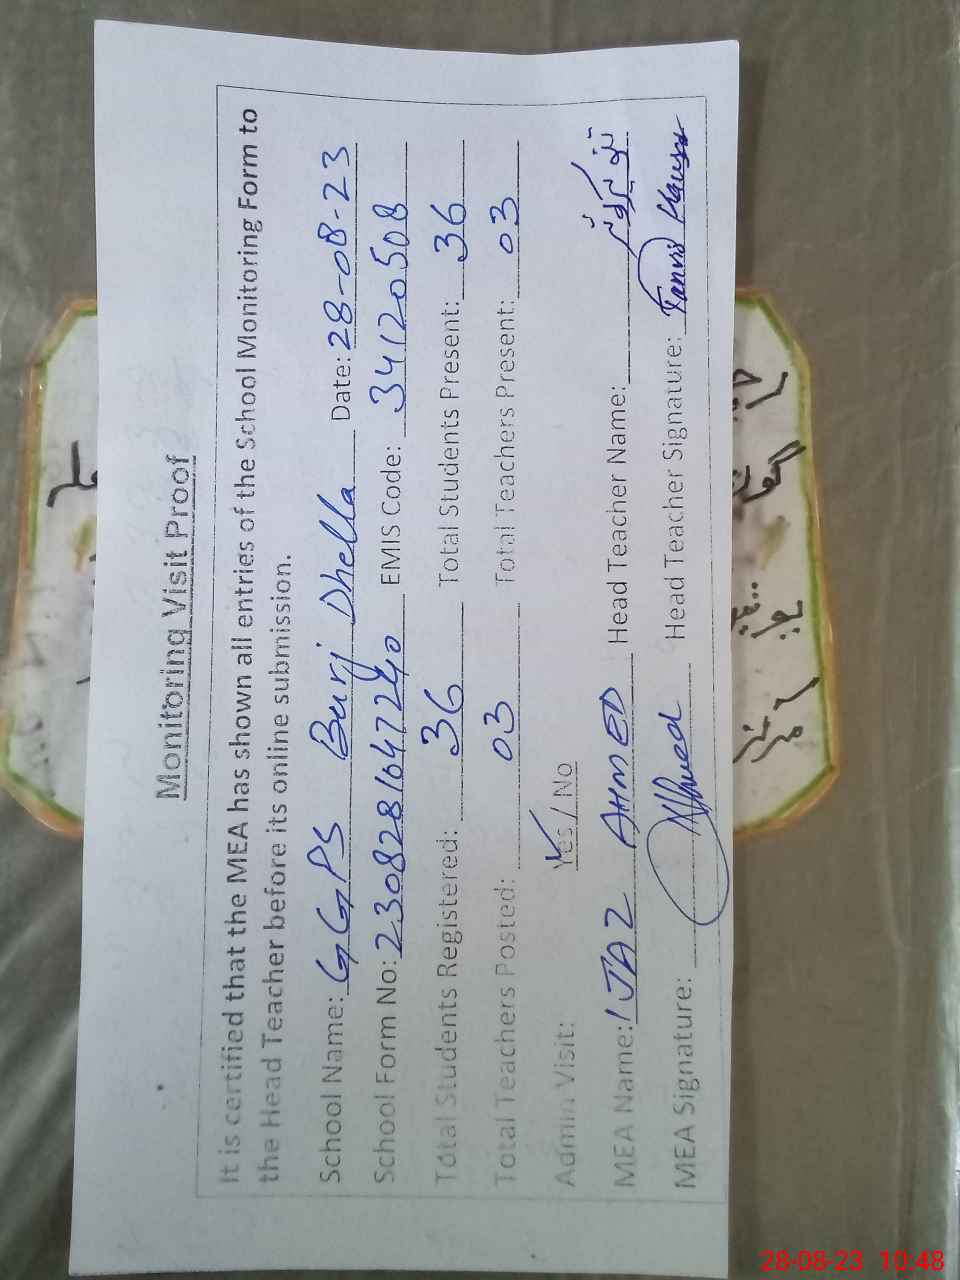 Monitoring Visit Proof
It is certified that the MEA has shown all entries of the School Monitoring Form to
the Head Teacher before its online submission.
School Name: GGPS Burj Dhella Date: 28-08-23
School Form No: 2308281647240 EMIS Code: 34120508
Total Students Registered: 36 Total Students Present: 36
Total Teachers Posted: 03 Total Teachers Present: 03
Admin Visit: Yes / No
MEA Name: IJAZ AHMED Head Teacher Name:
MEA Signature: Ahmed Head Teacher Signature:
28-08-23 10:48